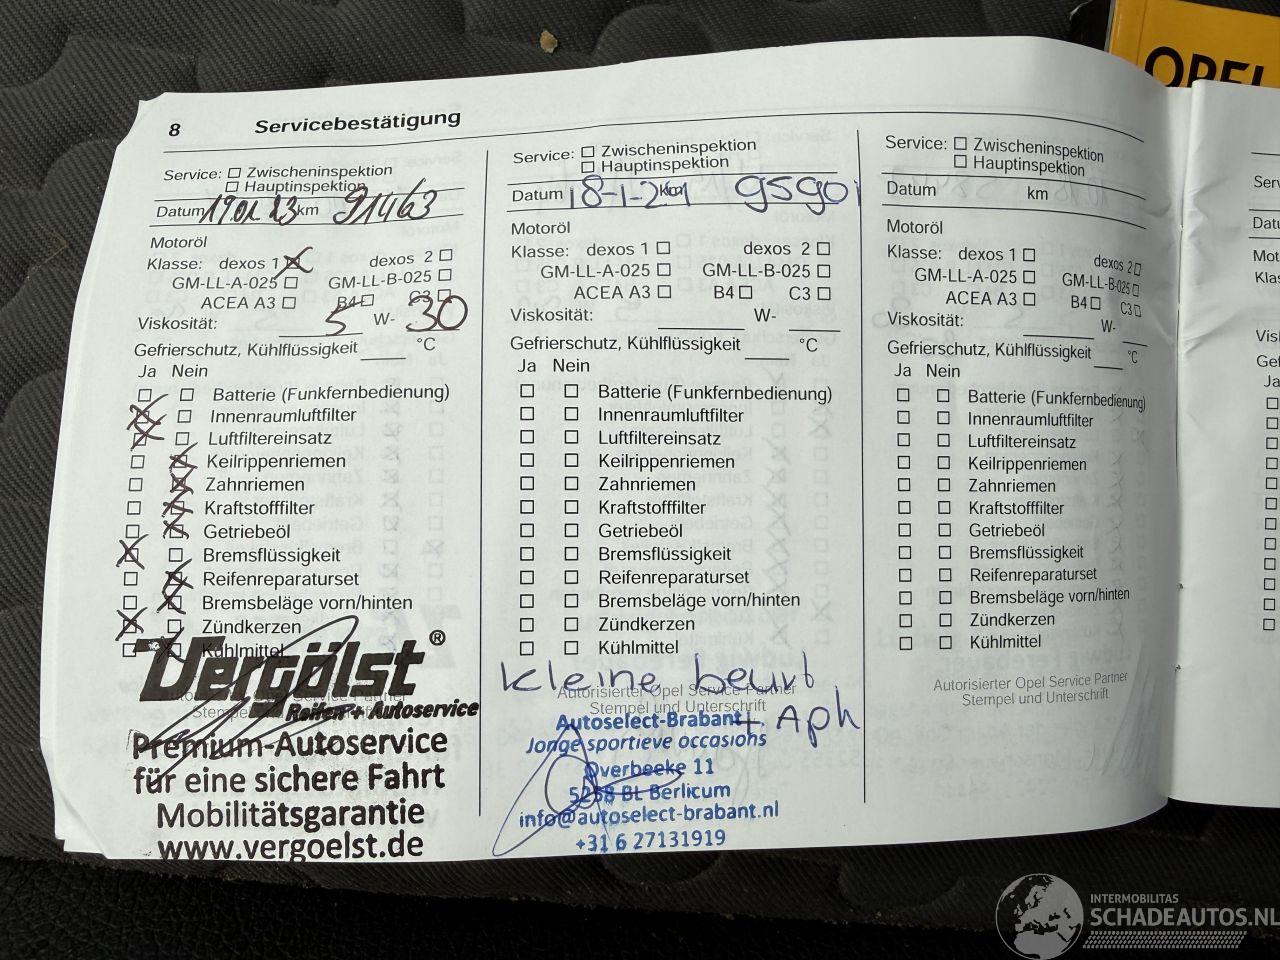 OPEL
8 Servicebestätigung
Service: Zwischeninspektion
Hauptinspektion
Datum 19.01.23 km 91463
Motoröl
Klasse: dexos 1 dexos 2
GM-LL-A-025 GM-LL-B-025
ACEA A3 B4 C3
Viskosität: 5 W- 30
Gefrierschutz, Kühlflüssigkeit °C
Ja Nein
Batterie (Funkfernbedienung)
Innenraumluftfilter
Luftfiltereinsatz
Keilrippenriemen
Zahnriemen
Kraftstofffilter
Getriebeöl
Bremsflüssigkeit
Reifenreparaturset
Bremsbeläge vorn/hinten
Zündkerzen
Kühlmittel
Vergölst ®
Reifen + Autoservice
Premium-Autoservice
für eine sichere Fahrt
Mobilitätsgarantie
www.vergoelst.de
Service: Zwischeninspektion
Hauptinspektion
Datum 18-1-24 km 95901
Motoröl
Klasse: dexos 1 dexos 2
GM-LL-A-025 GM-LL-B-025
ACEA A3 B4 C3
Viskosität: W-
Gefrierschutz, Kühlflüssigkeit °C
Ja Nein
Batterie (Funkfernbedienung)
Innenraumluftfilter
Luftfiltereinsatz
Keilrippenriemen
Zahnriemen
Kraftstofffilter
Getriebeöl
Bremsflüssigkeit
Reifenreparaturset
Bremsbeläge vorn/hinten
Zündkerzen
Kühlmittel
kleine beurt
Autorisierter Opel Service Partner
Stempel und Unterschrift
+ Aph
Autoselect-Brabant
Jonge sportieve occasions
Overbeeke 11
5258 BL Berlicum
info@autoselect-brabant.nl
+31 6 27131919
Service: Zwischeninspektion
Hauptinspektion
Datum km
Motoröl
Klasse: dexos 1 dexos 2
GM-LL-A-025 GM-LL-B-025
ACEA A3 B4 C3
Viskosität: W-
Gefrierschutz, Kühlflüssigkeit °C
Ja Nein
Batterie (Funkfernbedienung)
Innenraumluftfilter
Luftfiltereinsatz
Keilrippenriemen
Zahnriemen
Kraftstofffilter
Getriebeöl
Bremsflüssigkeit
Reifenreparaturset
Bremsbeläge vorn/hinten
Zündkerzen
Kühlmittel
Autorisierter Opel Service Partner
Stempel und Unterschrift
INTERMOBILITAS
SCHADEAUTOS.NL